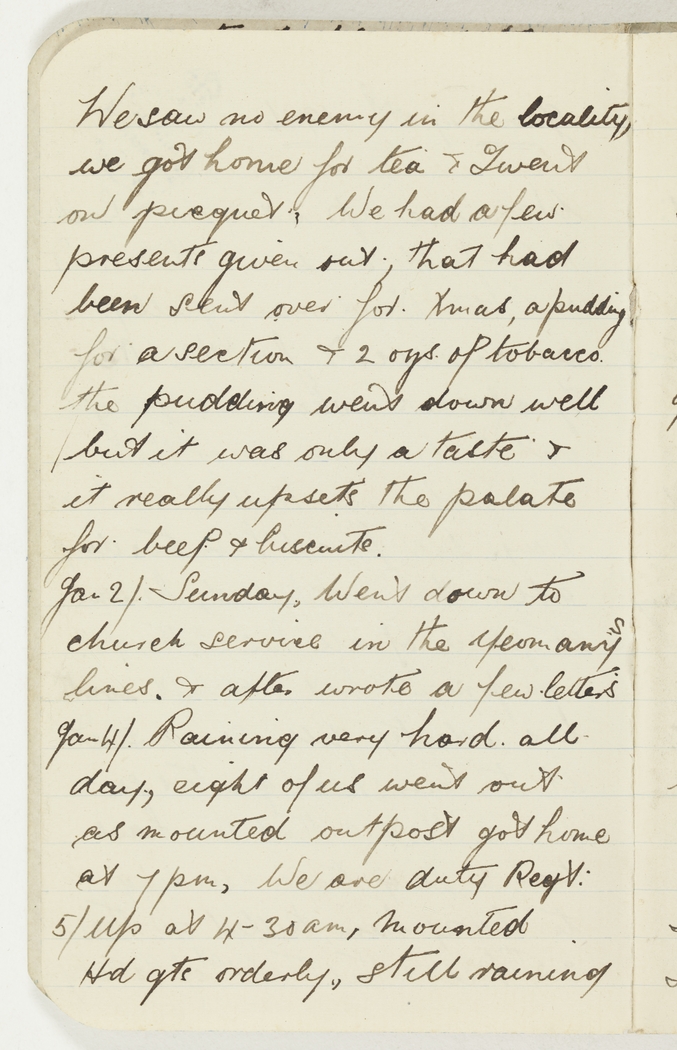 We saw no enemy in the locality,
we got home for tea & I went
on picquet, We had a few
presents given out, that had
been sent over for Xmas, a pudding
for a section & 2 ozs. of tobacco.
the pudding went down well
but it was only a taste &
it really upsets the palate
for beef & biscuits.
Jan 2/. Sunday, Went down to
church service in the Yeomanry's
lines. & after wrote a few letters
Jan 4/. Raining very hard. all
day, eight of us went out
as mounted outpost got home
at 7pm, We are duty Regt:
5/ Up at 4-30am, mounted
Hd qts orderly, still raining